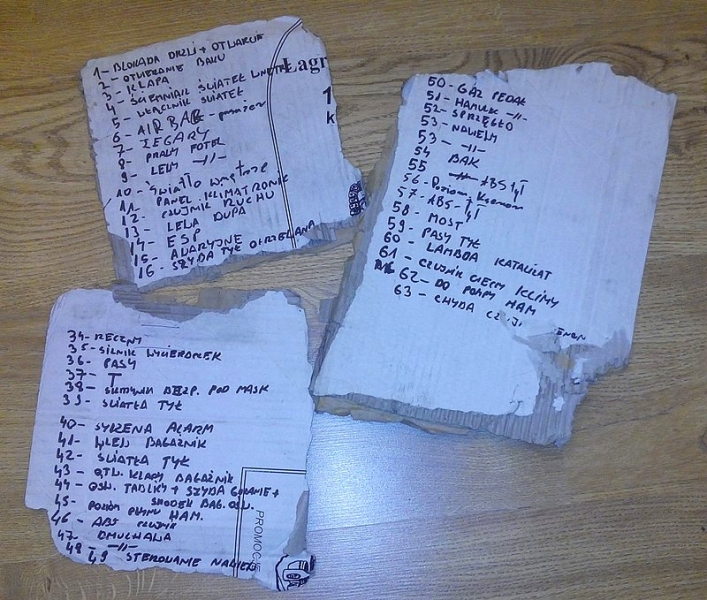 1- BLOKADA DRZWI + OTWARCIE
2- OTWIERANIE BAKU
3- KLAPA
4- ŚCIEMNIACZ ŚWIATEŁ WNĘTRZ
5- WŁĄCZNIK ŚWIATEŁ
6- AIRBAG - pasażer
7- ZEGARY
8- PRAWY FOTEL
9- LEWY -//-
10- Światło wnętrze
11- PANEL KLIMATRONIK
12- CZUJNIK RUCHU
13- LEWA DUPA
14- ESP
15- AWARYJNE
16- SZYBA TYŁ OGRZEWANA
Łagr
1
k
34- RĘCZNY
35- SILNIK WYCIERACZEK
36- PASY
37- T
38- POD MASK
39- ŚWIATŁA TYŁ
40- SYRENA ALARM
41- WLEW BAGAŻNIK
42- ŚWIATŁA TYŁ
43- OTW. KLAPY BAGAŻNIK
44- OŚW. TABLICY + SZYBA GRZANIE +
ŚRODEK BAG. OŚW.
45- POZIOM PŁYNU HAM.
46- ABS CZUJNIK
47- DMUCHAWA
48 -//-
49- STEROWANIE NAWIEW
PROMOCJE
50- GAZ PEDAŁ
51- HAMULEC -//-
52- SPRZĘGŁO
53- NAWIEW
53- -//-
54 BAK
55 ABS
56- Poziom Ksenon
57- ABS-
58- MOST
59- PASY TYŁ
60- LAMBDA KATALIZAT
61- CZUJNIK CIECZY KLIMY
62- DO POMPY HAM
63- CHYBA